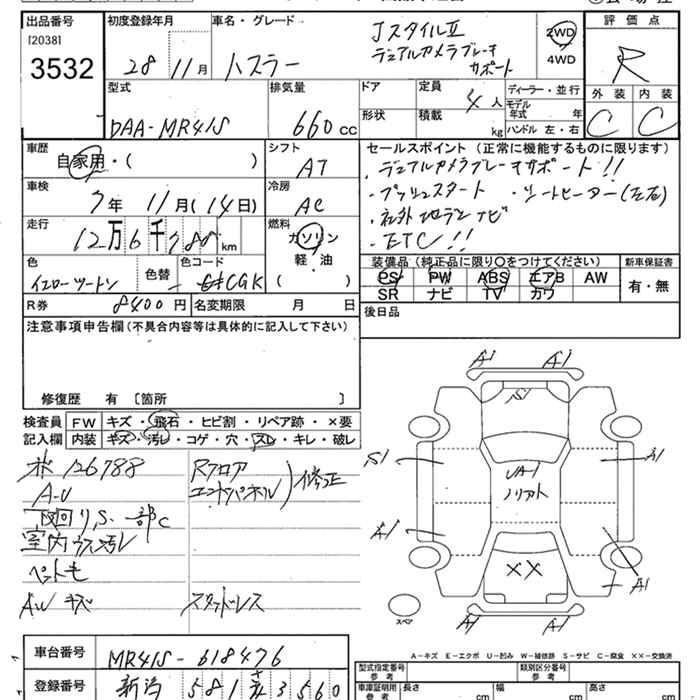 出品番号 初度登録年月 車名・グレード Jスタイル Ⅱ 2WD 評価点
[2038] 28 11月 ハスラー デュアルカメラブレーキサポート 4WD R
3532 型式 排気量 ドア 定員 4人 ディーラー・並行 外装 内装
DAA-MR41S 660cc 形状 積載 kg モデル年式 年 C C
ハンドル 左・右
車歴 シフト セールスポイント (正常に機能するものに限ります)
自家用・( ) AT ・デュアルカメラブレーキサポート!!
車検 冷房 ・プッシュスタート ・シートヒーター(左右)
7年 11月(14日) AC ・社外地デジナビ
走行 燃料 ・ETC!!
12万6千788km ガソリン
軽・油
( )
色 色替 色コード 装備品 (純正品に限り〇をつけてください) 新車保証書
イエローツートン CGK PS PW ABS エアB AW 有・無
SR ナビ TV カワ
R券 8400円 名変期限 月 日 後日品
注意事項申告欄(不具合内容等は具体的に記入して下さい)
修復歴 有 [箇所 ]
検査員 FW キズ・飛石・ヒビ割・リペア跡・×要
記入欄 内装 キズ・汚レ・コゲ・穴・スレ・キレ・破レ
126788 Rフロア
A-U エンドパネル)修正
下回りS、一部C
室内ウス汚レ
ペット毛
AWキズ スタッドレス
A1 A1
S1
S1 A1
UA-1
ノリアト
A1
××
A1
A1 A1
スペア
A-キズ E-エクボ U-凹み W-補修跡 S-サビ C-腐食 ××-交換済
車台番号 MR41S-618476 型式指定番号 参考 類別区分番号 参考
登録番号 新潟 581 3560 車庫証明用 参考 長さ cm 幅 cm 高さ cm